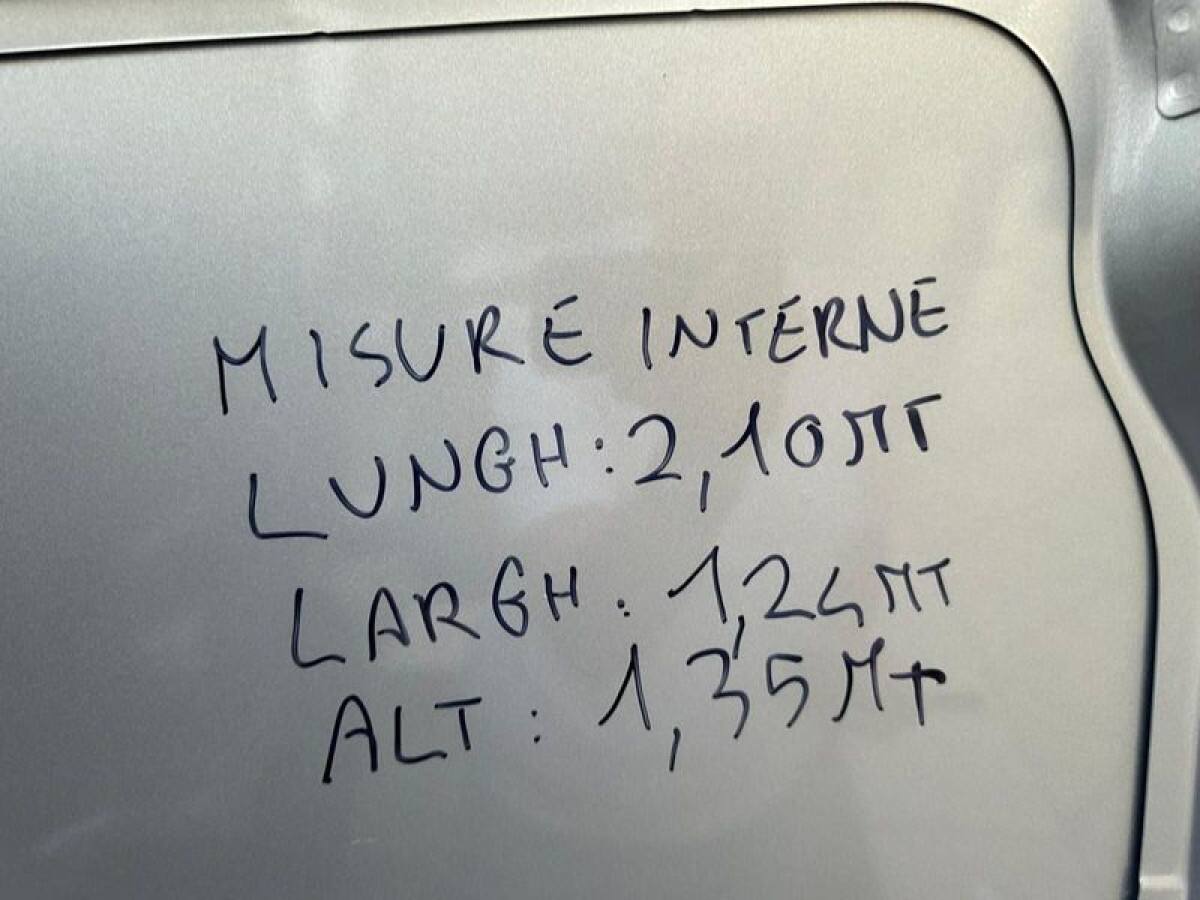 MISURE INTERNE
LUNGH: 2,10 MT
LARGH: 1,24 MT
ALT: 1,35 MT